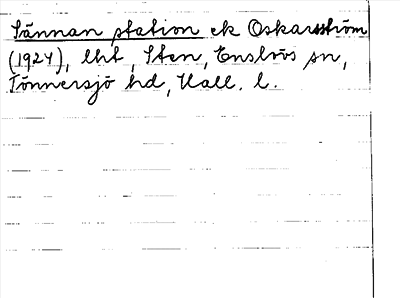 Sännan station ek Oskarsström
(1924), lht, Sten, Enslövs sn,
Tönnersjö hd, Hall. l.